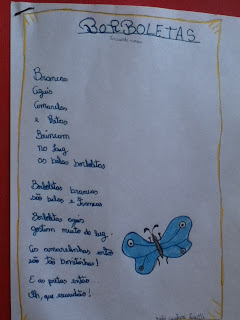 BORBOLETAS
Brancas
Azuis
Amarelas
e Pretas
Brincam
na luz
as belas borboletas
Borboletas brancas
são belas e francas
Borboletas azuis
gostam muito de luz.
As amarelinhas
são tão bonitinhas!
E as pretas então...
Oh, que escuridão!